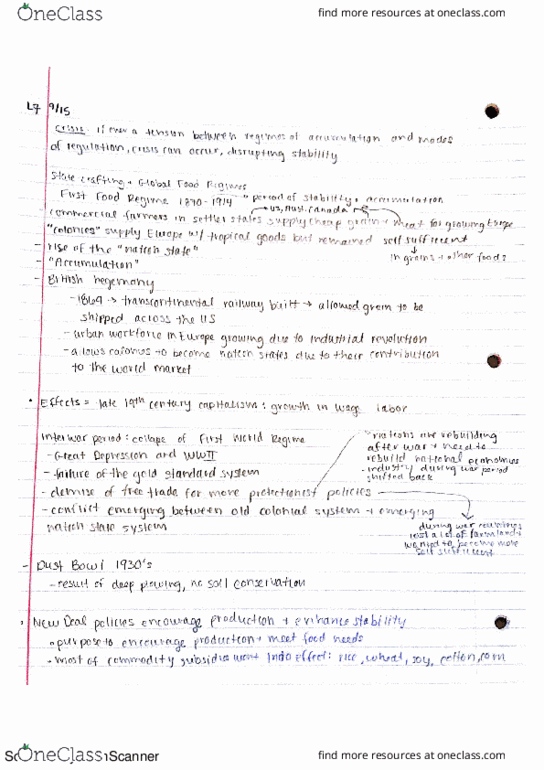 OneClass
find more resources at oneclass.com
L7 9/15
Crisis: if ever a tension between regimes of accumulation and modes
of regulation, crisis can occur, disrupting stability
State crafting + Global Food Regimes
First Food Regime 1870-1914 period of stability + accumulation
US, Aust, Canada
commercial farmers in settler states supply cheap grain + meat for growing Europe
"colonies" supply Europe w/ tropical goods but remained self sufficient
in grains + other foods
- rise of the "nation state"
- "Accumulation"
- British hegemony
- 1869 → transcontinental railway built → allowed grain to be
shipped across the US
- urban workforce in Europe growing due to industrial revolution
- allows colonies to become nation states due to their contribution
to the world market
• Effects = late 19th century capitalism: growth in wage labor
Interwar period: collapse of First World Regime
- Great Depression and WWII
- failure of the gold standard system
- demise of free trade for more protectionist policies
- conflict emerging between old colonial system + emerging
nation state system
nations are rebuilding
after war + need to
rebuild national economies
- industry during war period
shifted back
during war
lost a lot of farm land
wanted to become more
self sufficient
- Dust Bowl 1930's
- result of deep plowing, no soil conservation
New Deal policies encourage production + enhance stability
purpose to encourage production + meet food needs
most of commodity subsidies went into effect: rice, wheat, soy, cotton, corn
OneClass
Scanner
find more resources at oneclass.com